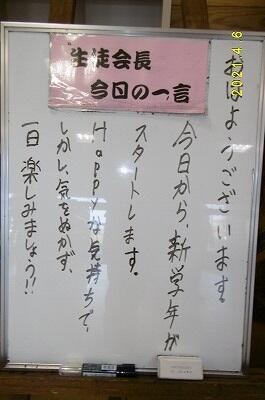 生徒会長
今日の一言
2021 4 6
おはようございます。
今日から、新学年が
スタートします。
Happyな気持ちで、
しかし、気をぬかず、
一日楽しみましょう!!